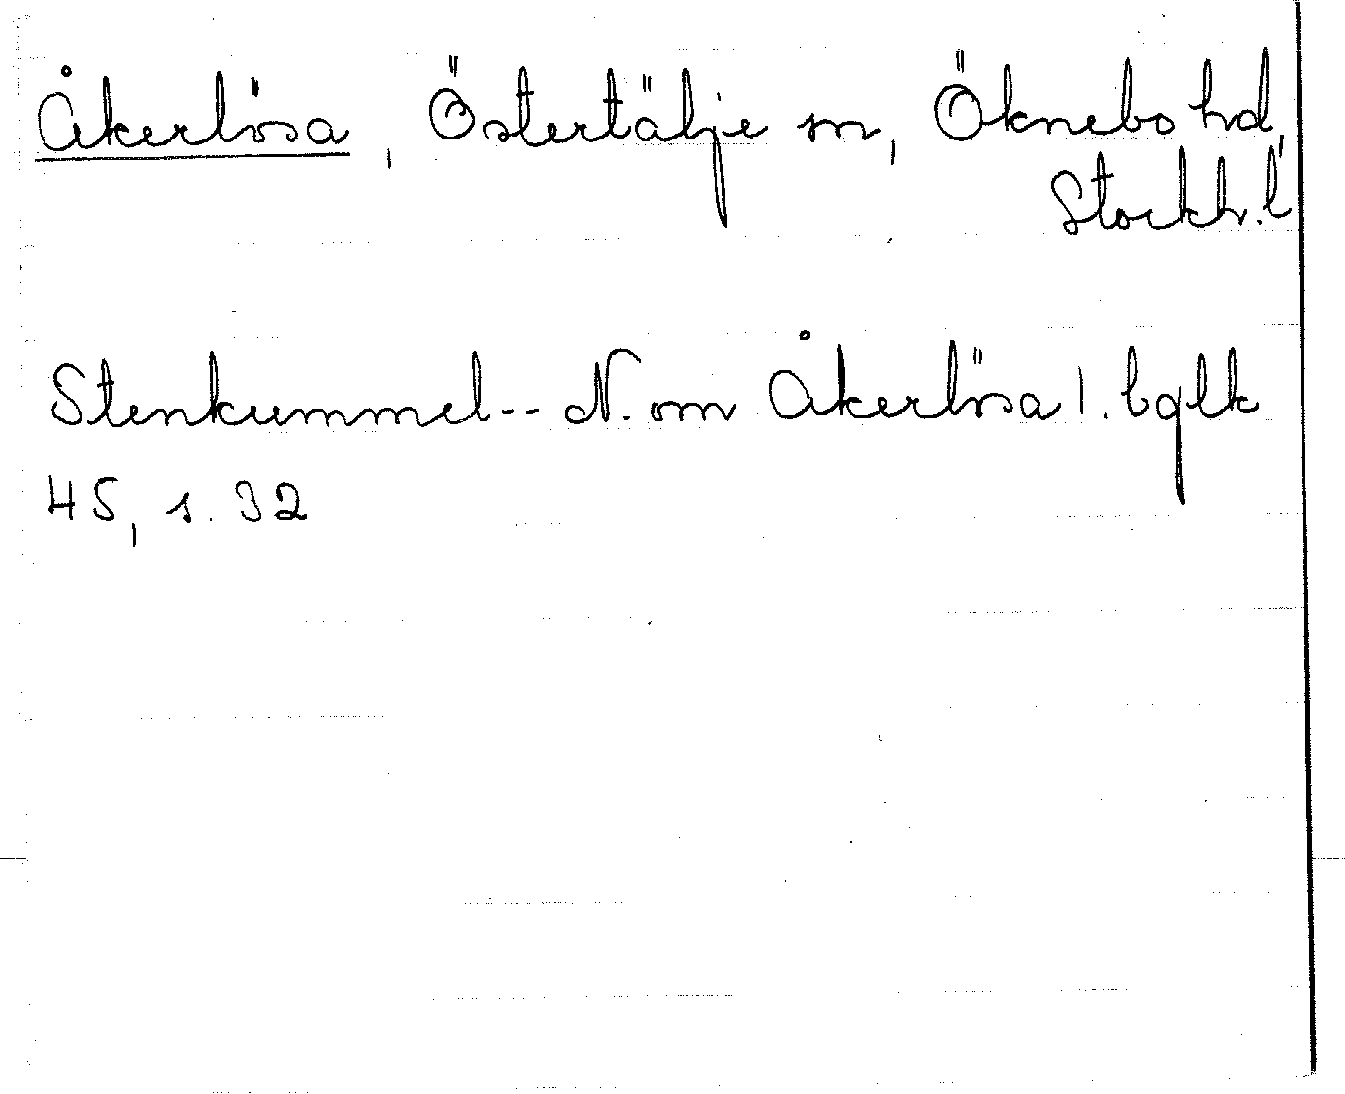 Åkerlösa, Östertälje sn, Öknebo hd,
Stockh. l
Stenkummel-- N. om Åkerlösa l. bglk
45, s. 32